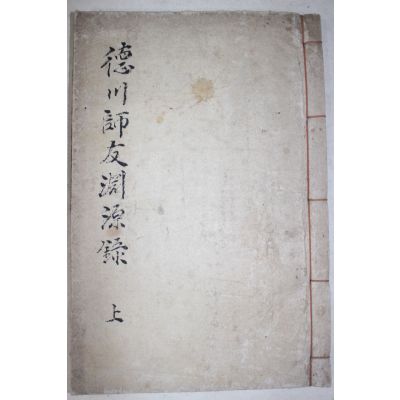 德川師友淵源錄 上